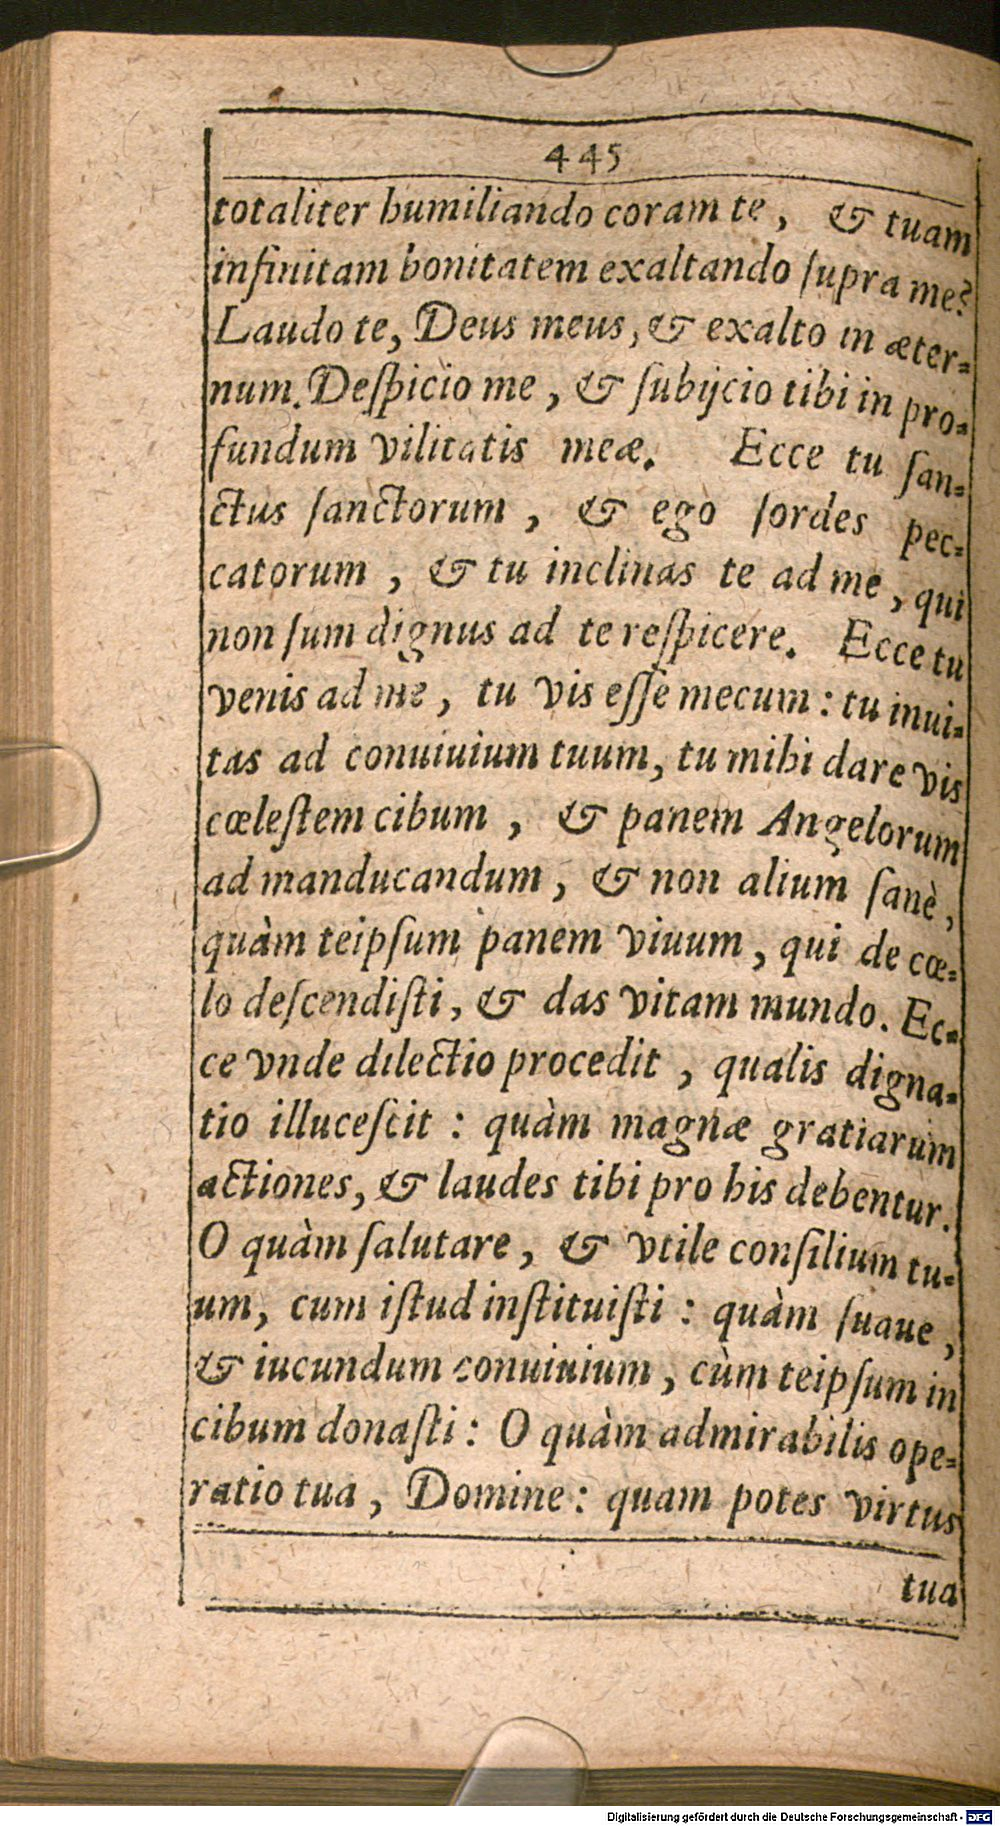 445
totaliter humiliando coram te, & tuam
infinitam bonitatem exaltando ſupra me?
Laudo te, Deus meus, & exalto in æter-
num. Deſpicio me, & ſubijcio tibi in pro-
fundum vilitatis meæ. Ecce tu ſan-
ctus ſanctorum, & ego ſordes pec-
catorum, & tu inclinas te ad me, qui
non ſum dignus ad te reſpicere. Ecce tu
venis ad me, tu vis eſſe mecum: tu inui-
tas ad conuiuium tuum, tu mihi dare vis
cœleſtem cibum, & panem Angelorum
ad manducandum, & non alium ſanè,
quàm teipſum panem viuum, qui de cœ-
lo deſcendiſti, & das vitam mundo. Ec-
ce vnde dilectio procedit, qualis digna-
tio illuceſcit: quàm magnæ gratiarum
actiones, & laudes tibi pro his debentur.
O quàm ſalutare, & vtile conſilium tu-
um, cum iſtud inſtituiſti: quàm ſuaue,
& iucundum conuiuium, cùm teipſum in
cibum donaſti: O quàm admirabilis ope-
ratio tua, Domine: quam potes virtus
tua
Digitalisierung gefördert durch die Deutsche Forschungsgemeinschaft - DFG